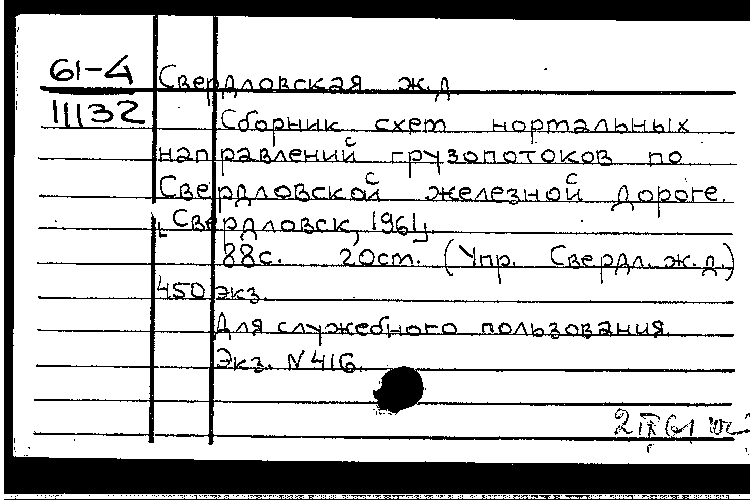 61-4 Свердловская ж.д
11132
Сборник схем нормальных
направлений грузопотоков по
Свердловской железной дороге.
[Свердловск, 1961].
88с. 20см. (Упр. Свердл. ж.д.)
450 экз.
Для служебного пользования
Экз. N 416.
2 IX 61